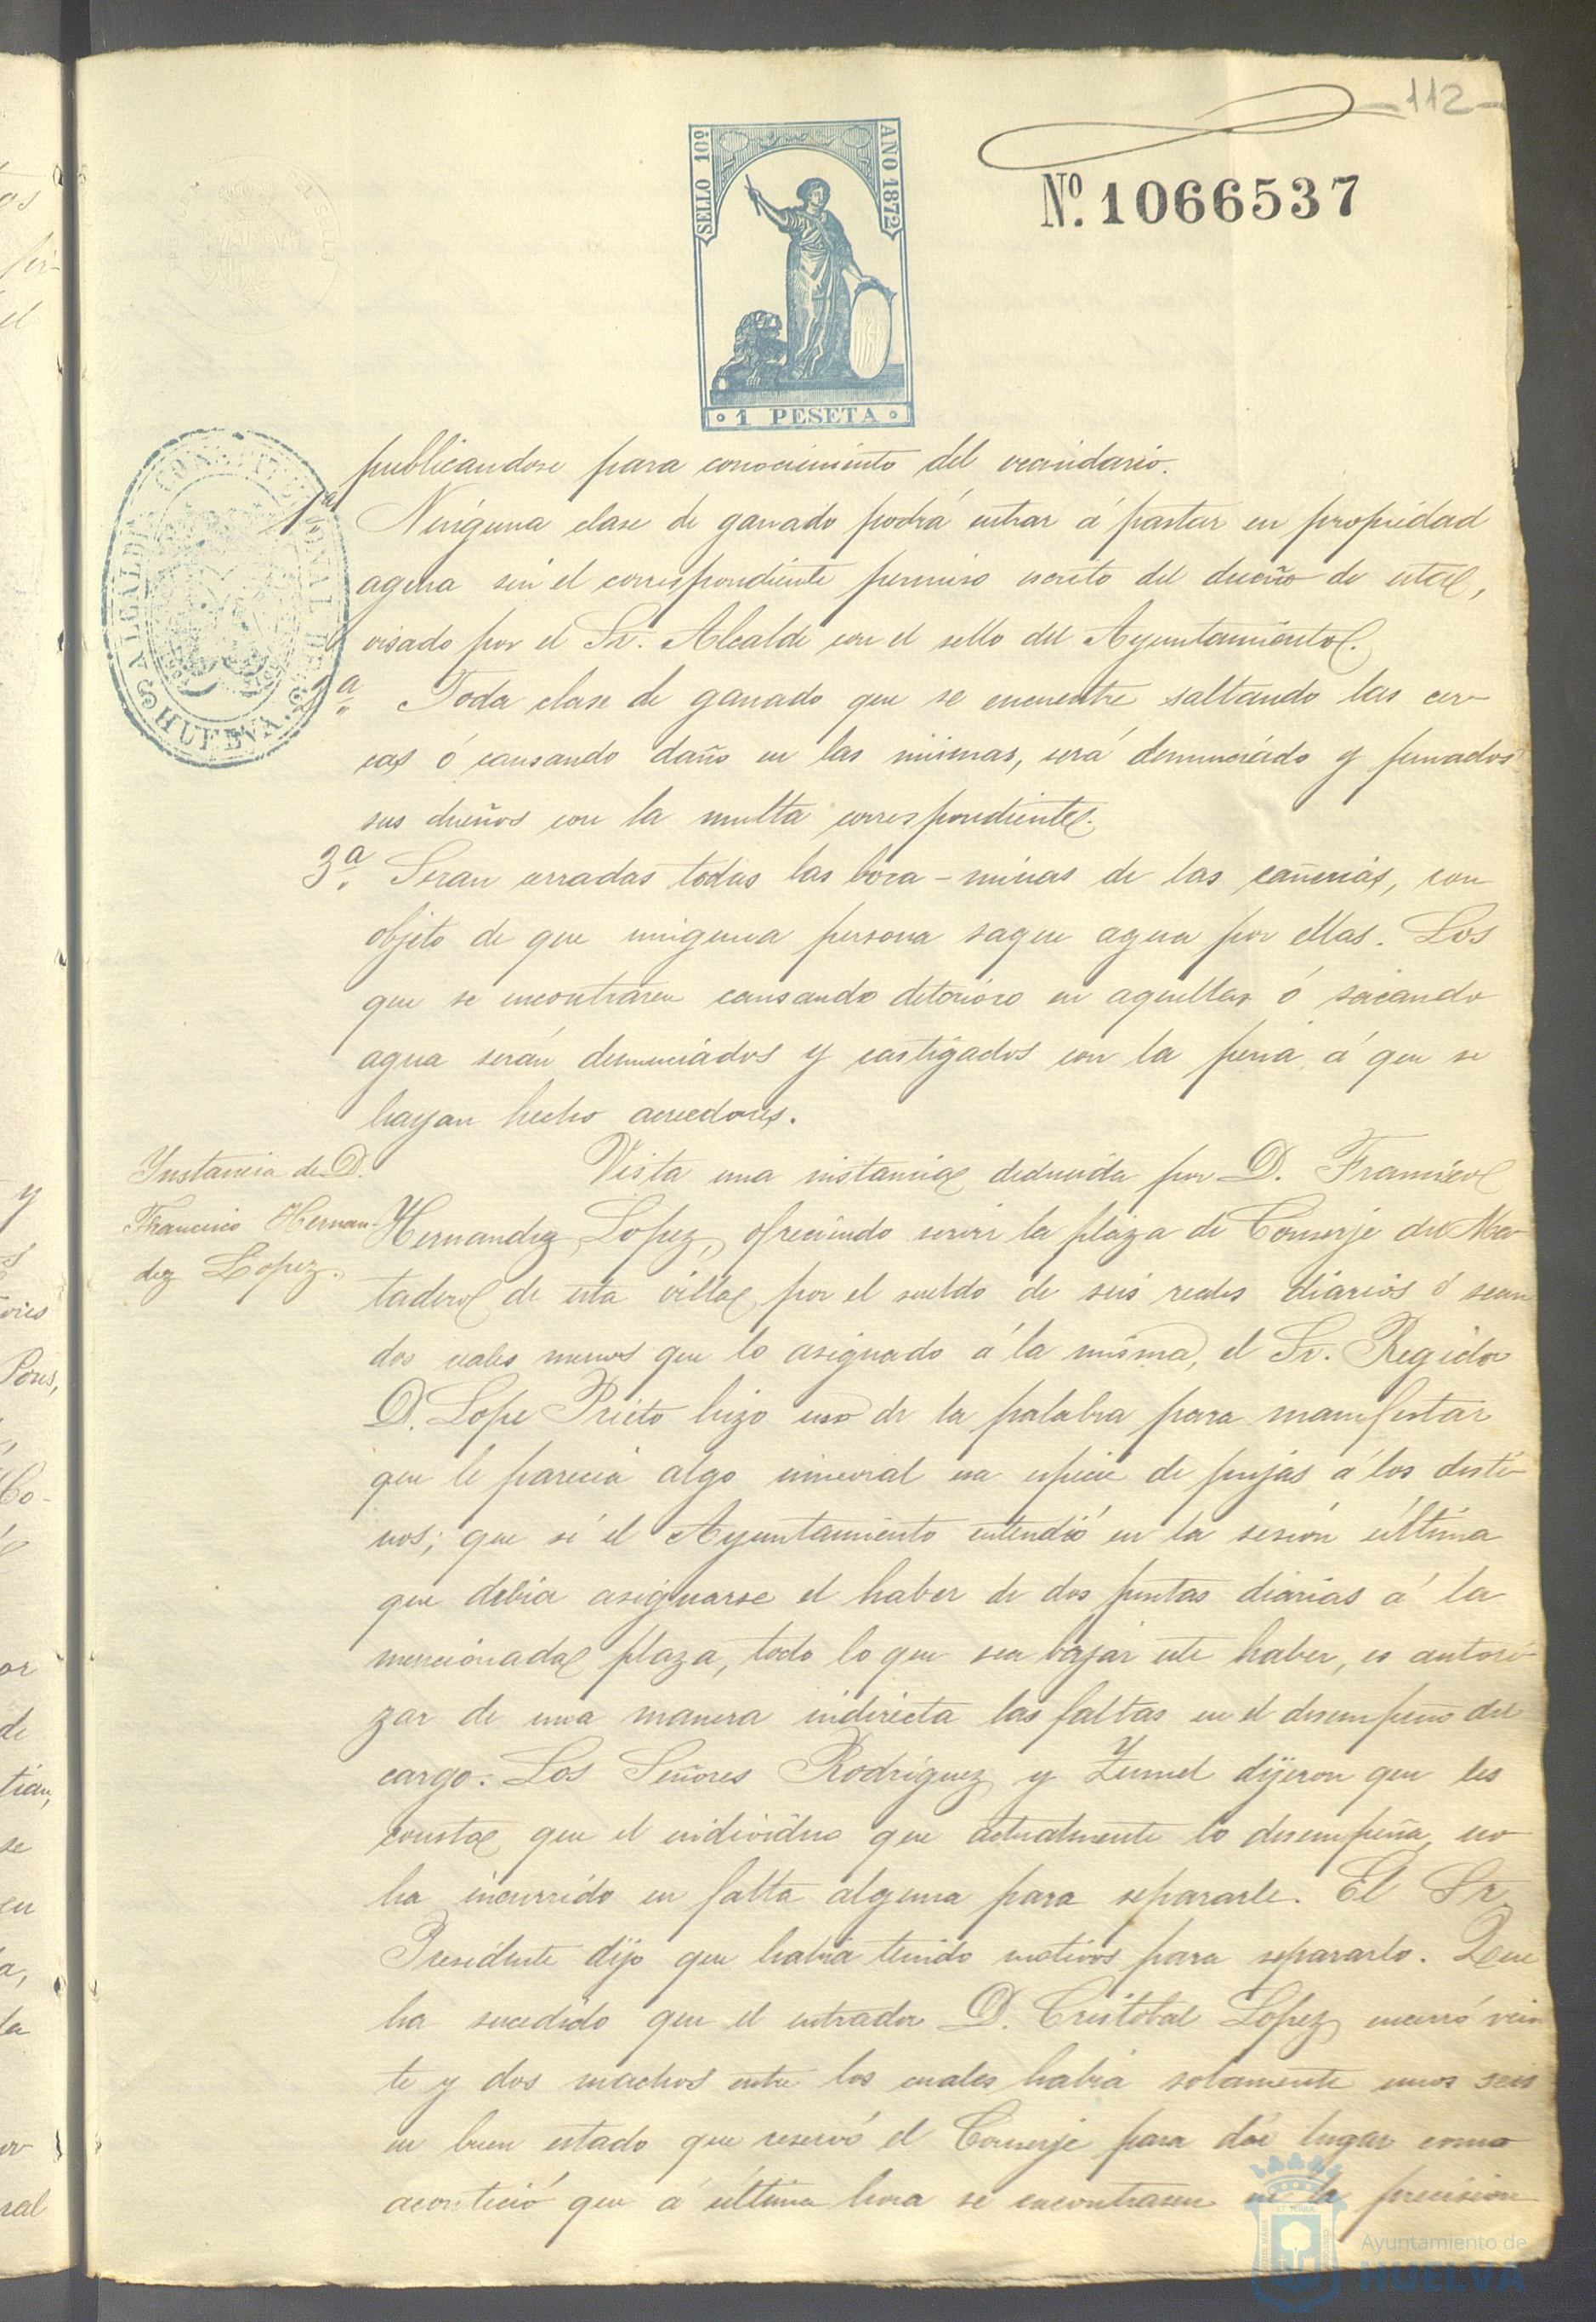 -112-
SELLO 10º
AÑO 1872
Nº. 1066537
1 PESETA
ALCALDIA CONSTITUCIONAL DE
HUELVA
publicandose para conocimiento del vecindario.
1ª Ninguna clase de ganado podrá entrar á pastar en propiedad
agena sin el correspondiente permiso escrito del dueño de esta,
visado por el Sr. Alcalde con el sello del Ayuntamiento.
2ª Toda clase de ganado que se encuentre saltando las cer-
cas ó causando daño en las mismas, será denunciado y penados
sus dueños con la multa correspondiente.
3ª Seran cerradas todas las boca-minas de las cañerias, con
objeto de que ninguna persona saque agua por ellas. Los
que se encontraren causando deterioro en aquellas ó sacando
agua serán denunciados y castigados con la pena á que se
hayan hecho acreedores.
Instancia de D.
Francisco Hernan-
dez Lopez.
Vista una instancia deducida por D. Francisco
Hernandez Lopez, ofreciendo servir la plaza de Conserje del Ma-
tadero de esta villa por el sueldo de seis reales diarios ó sean
dos reales menos que lo asignado á la misma, el Sr. Regidor
D. Lope Prieto hizo uso de la palabra para manifestar
que le parecia algo inmoral esa especie de pujas á los desti-
nos; que si el Ayuntamiento entendió en la sesion última
que debia asignarse el haber de dos pesetas diarias á la
mencionada plaza, todo lo que sea bajar este haber, es autori-
zar de una manera indirecta las faltas en el desempeño del
cargo. Los Señores Rodriguez y Zunnel dijeron que les
consta que el individuo que actualmente lo desempeña, no
ha incurrido en falta alguna para separarle. El Sr.
Presidente dijo que habia tenido motivos para separarlo. Que
ha sucedido que el entrador D. Cristobal Lopez encerró vein
te y dos machos entre los cuales habia solamente unos seis
en buen estado que reservó el Conserje para dár lugar como
aconteció que á última hora se encontrasen en la precision
Ayuntamiento de
HUELVA